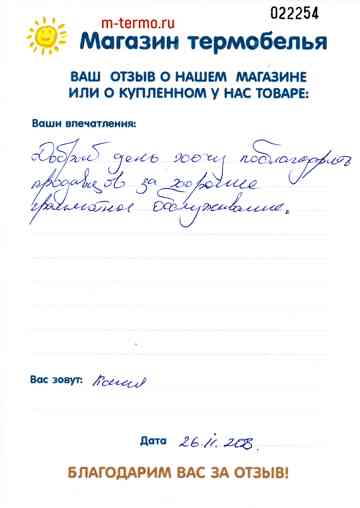 m-termo.ru
022254
Магазин термобелья
ВАШ ОТЗЫВ О НАШЕМ МАГАЗИНЕ
ИЛИ О КУПЛЕННОМ У НАС ТОВАРЕ:
Ваши впечатления:
Добрый день хочу поблагодарить
продавцов за хорошее
грамотное обслуживание.
Вас зовут: Ксения
Дата 26.11.
БЛАГОДАРИМ ВАС ЗА ОТЗЫВ!